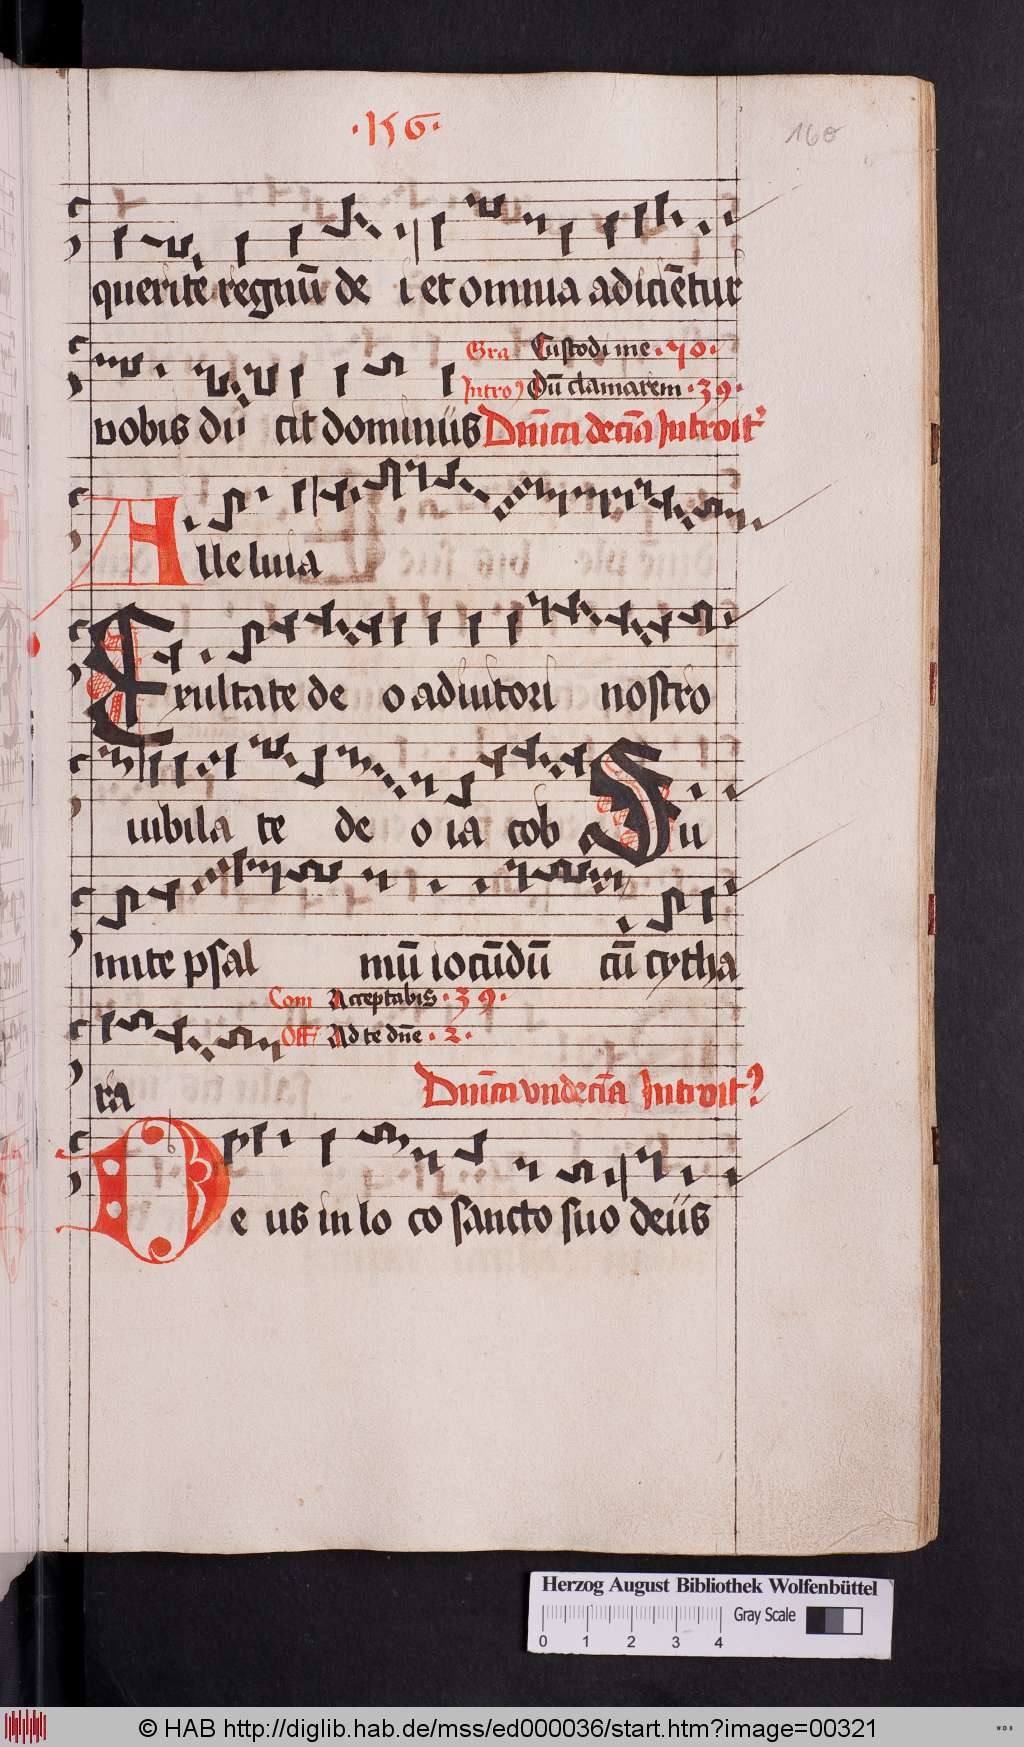 ·156·
160
querite regnū de i et omnia adiciētur
Gra Custodi me ·70·
Intro) Dū clamarem ·39·
vobis di cit dominus Dn̄ica decīa Introit
Alleluia
Exultate de o adiutori nostro
iubila te de o ia cob Su
mite psal mū iocūdū cū cytha
Com Acceptabis ·39·
Off Ad te dn̄e ·2·
ra Dn̄ica vndecīa Introit
De us in lo co sancto suo deus
Herzog August Bibliothek Wolfenbüttel
Gray Scale
0 1 2 3 4
© HAB http://diglib.hab.de/mss/ed000036/start.htm?image=00321